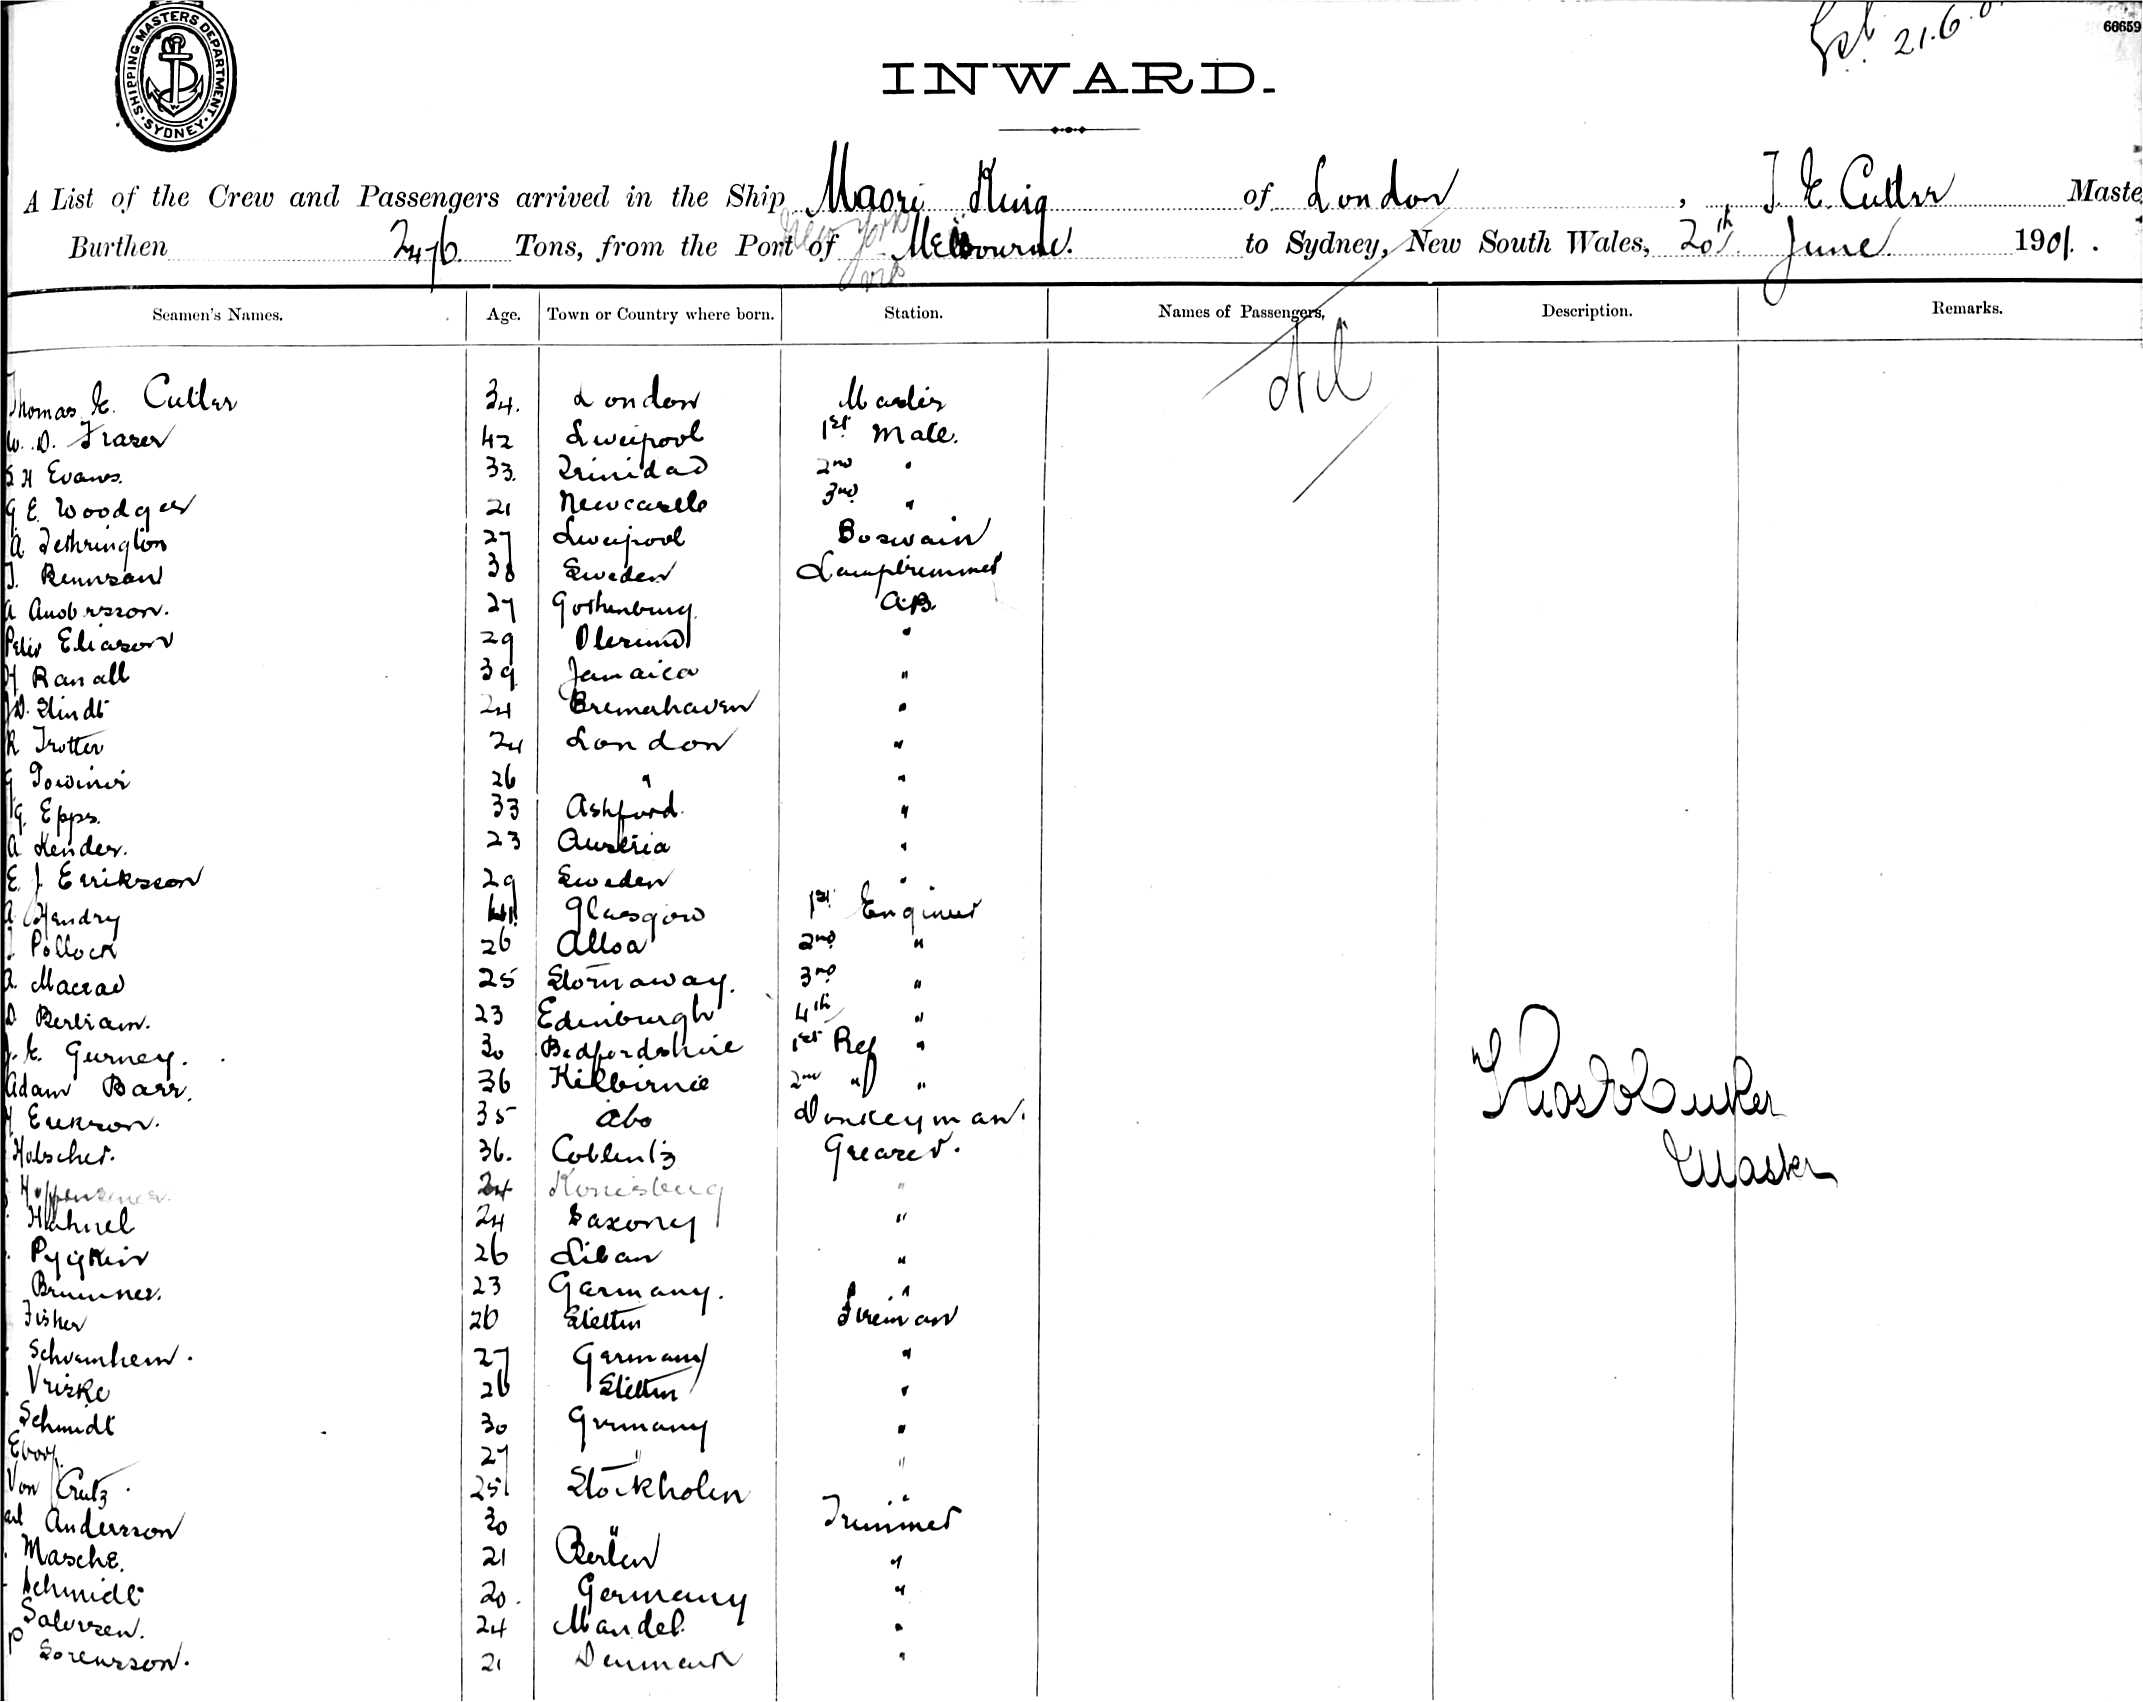 SHIPPING MASTERS DEPARTMENT. SYDNEY.
21.6.0
66659
INWARD.
A List of the Crew and Passengers arrived in the Ship Maori King of London, T. E. Cutler Maste
Burthen 2476 Tons, from the Port of New York via Melbourne. to Sydney, New South Wales, 20th June 1901.
Seamen's Names. Age. Town or Country where born. Station. Names of Passengers, Description. Remarks.
Nil
Thomas E. Cutler 34. London Master
W. D. Frazer 42 Liverpool 1st Mate.
S H Evans. 33. Trinidad 2nd "
G E. Woodger 21 Newcastle 3rd "
A Tethrington 27 Liverpool Boswain
T. Rennson 38 Sweden Lamptrimmer
A Andersson. 27 Gothenburg A.B.
Peter Eliason 29 "
H Ranall 39 Jamaica "
J D. Stindt 24 Bremerhaven "
R Trotter 24 London "
G 26 " "
G. Epps. 33 Ashford. "
A Kender. 23 Austria "
E. J Erriksson 29 Sweden "
A Hendry 41 Glasgow 1st Engineer
J. Pollock 26 Alloa 2nd "
A. Macrae 25 Stornaway. 3rd "
D Bertram. 23 Edinburgh 4th "
J. E. Gurney. 30 Bedfordshire 1st Ref "
Adam Barr. 36 Kilbirnie 2nd " "
H Erikson. 35 Abo Donkeyman.
Holscher. 36. Coblentz Greaser.
24 Konisburg "
Hahnel 24 Saxony "
26 Libau "
Brunner. 23 Germany. "
Fisher 26 Stettin Fireman
27 Germany "
Vriske 26 Stettin "
Schmidt 30 Germany "
27 " "
Von 25 Stockholm "
Carl Andersson 30 " Trimmer
Masche. 21 Berlin "
Schmidt 20. Germany "
Salvesen. 24 Mandel. "
P Sorensson. 21 Denmark "
Thos E Cutler
Master